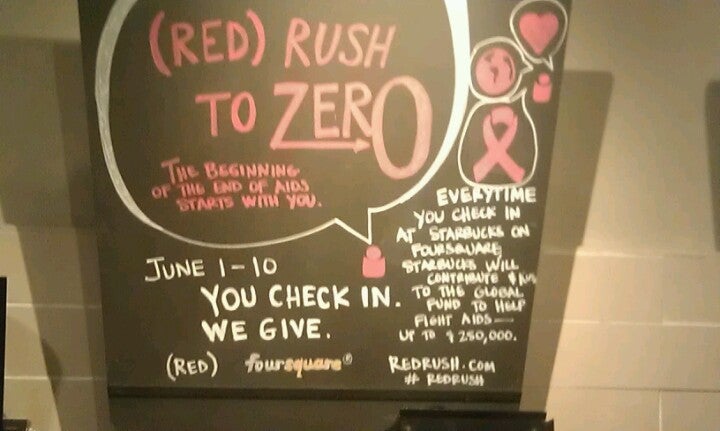 (RED) RUSH
TO ZERO
THE BEGINNING
OF THE END OF AIDS
STARTS WITH YOU.
JUNE 1-10
YOU CHECK IN.
WE GIVE.
(RED) foursquare®
EVERYTIME
YOU CHECK IN
AT STARBUCKS ON
FOURSQUARE,
STARBUCKS WILL
CONTRIBUTE
TO THE GLOBAL
FUND TO HELP
FIGHT AIDS—
UP TO $250,000.
REDRUSH.COM
# REDRUSH